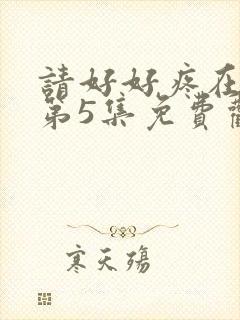 請好好疼在
第5集免費觀
寒天殤